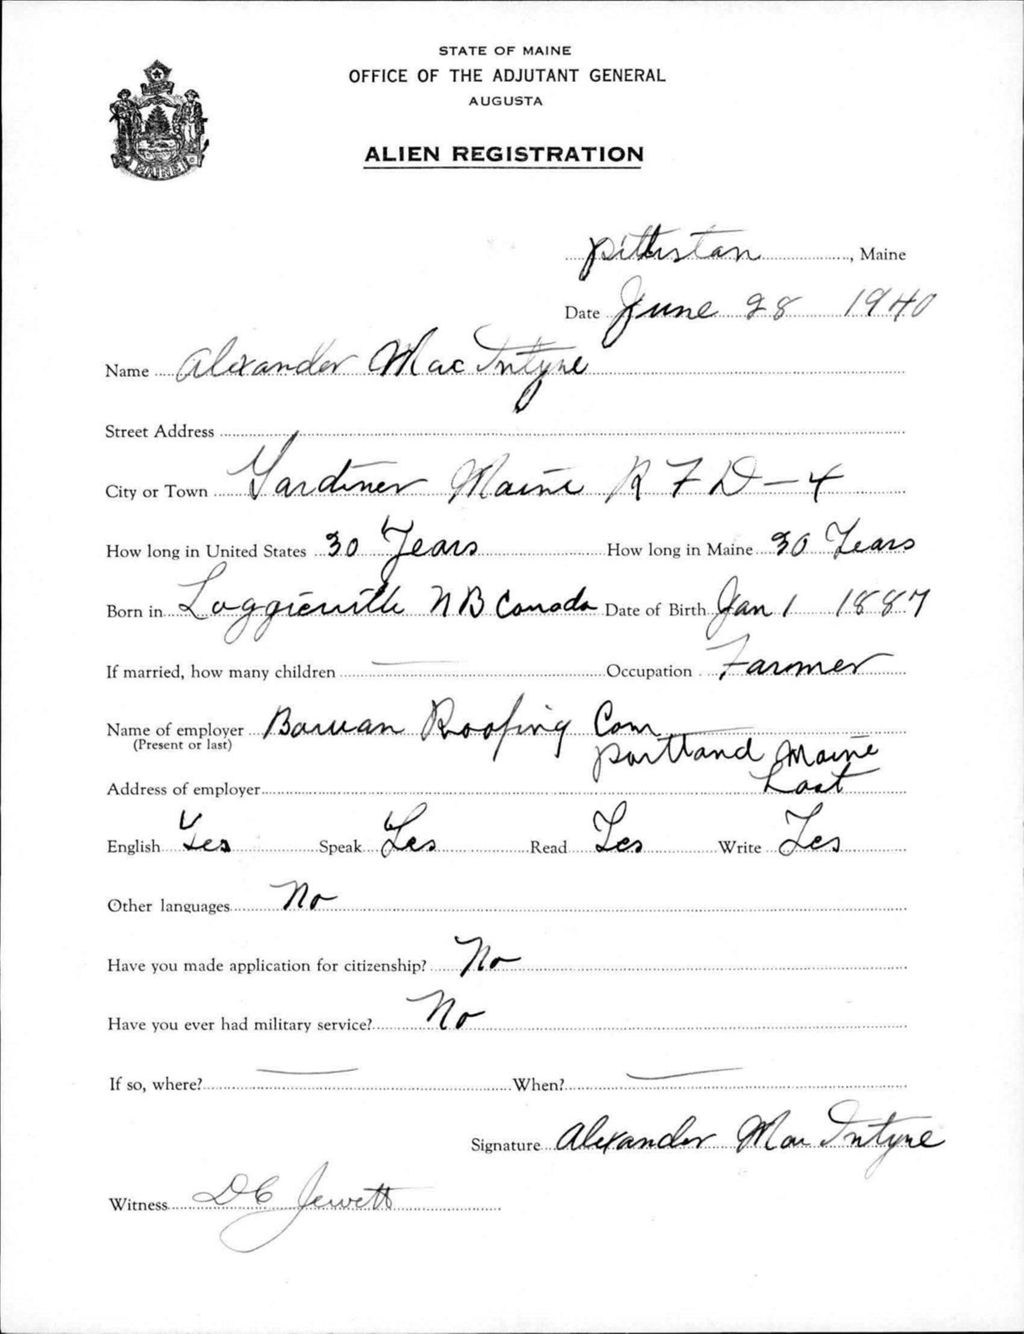 STATE OF MAINE
OFFICE OF THE ADJUTANT GENERAL
AUGUSTA
ALIEN REGISTRATION
MAINE
Pittstan, Maine
Date June 28 1940
Name Alexander Mac Intyre
Street Address
City or Town Gardiner Maine R F D-4
How long in United States 30 Years How long in Maine 30 Years
Born in Loggieville NB Canada Date of Birth Jan 1 1887
If married, how many children Occupation Farmer
Name of employer Roofing Com
(Present or last)
Portland Maine
Address of employer Last
English Yes Speak Yes Read Yes Write Yes
Other languages No
Have you made application for citizenship? No
Have you ever had military service? No
If so, where? When?
Signature Alexander Mac Intyre
Witness D C Jewett